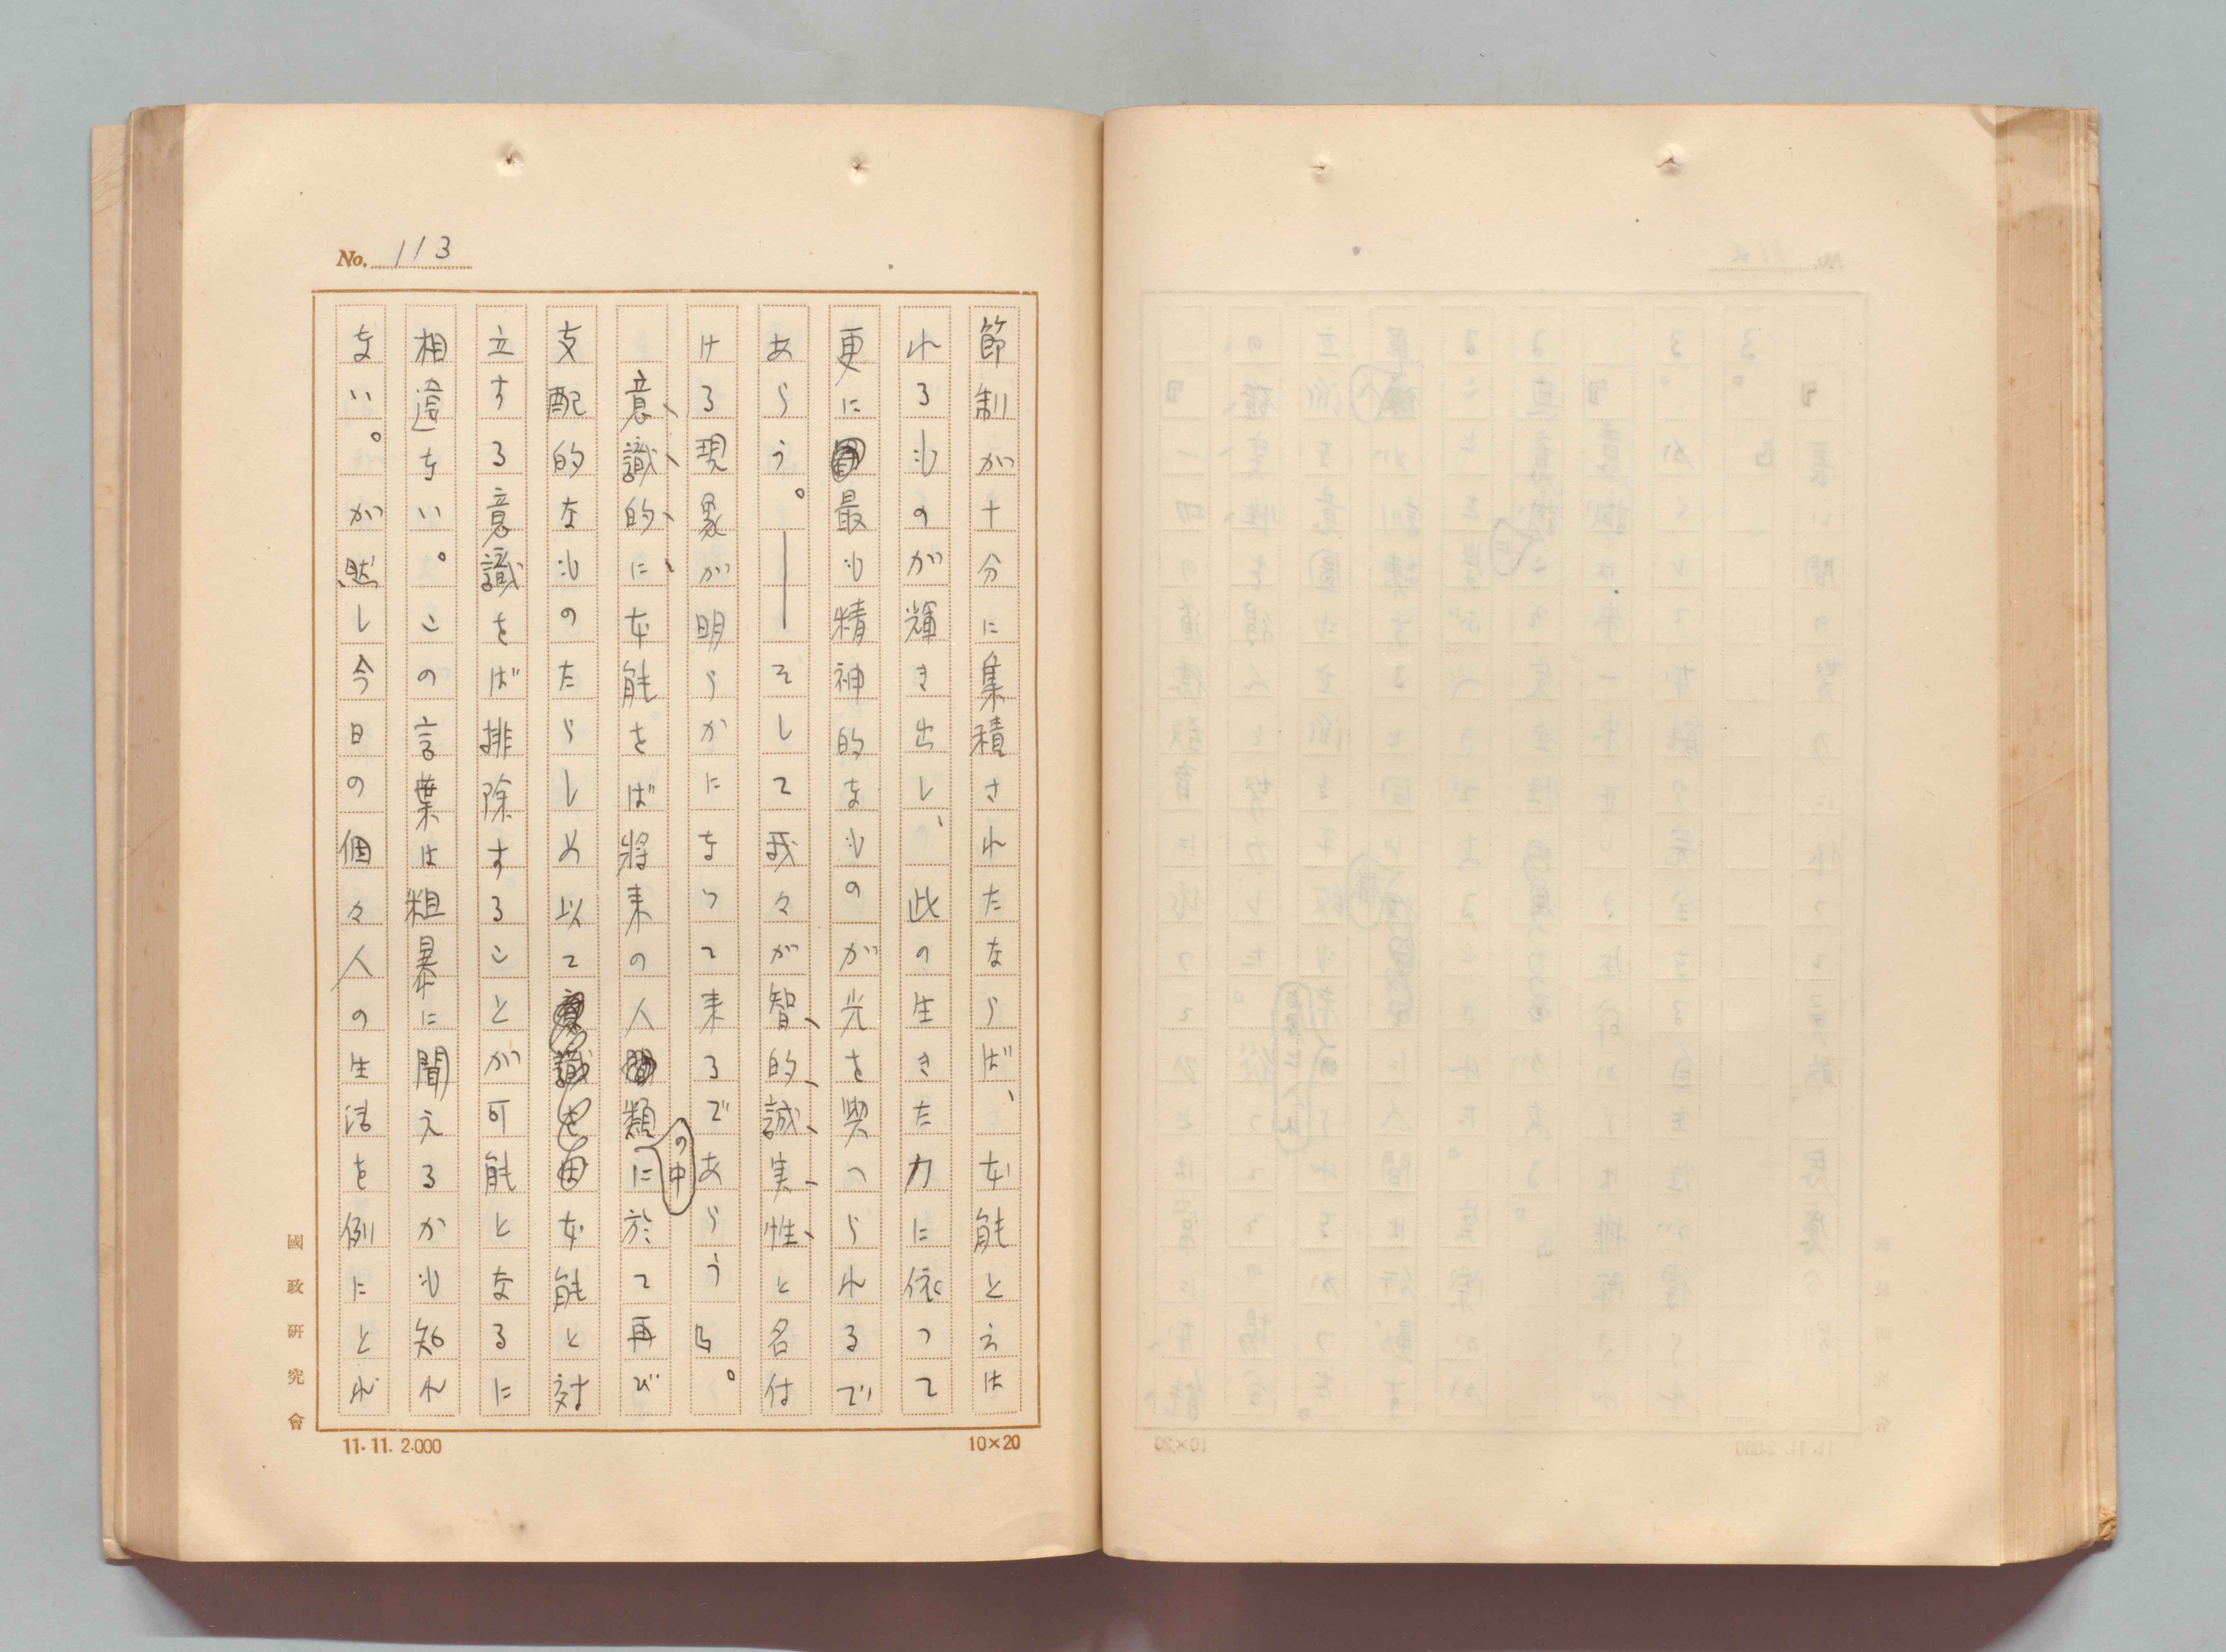 No. 113
節制が十分に集積されたならば、本能とえは
れるものが輝き出し、此の生きた力に依つて
更に最も精神的なものが光を與へられるで
あらう。――そして我々が智的誠実性と名付
ける現象が明らかになつて来るであらう』。
意識的に本能をば將来の人類の中に於て再び
支配的なものたらしめ以て本能と対
立する意識をば排除することが可能となるに
相違ない。この言葉は粗暴に聞えるかも知れ
ない。が然し今日の個々人の生活を例にとれ
國政研究會
11.11.2.000
10×20